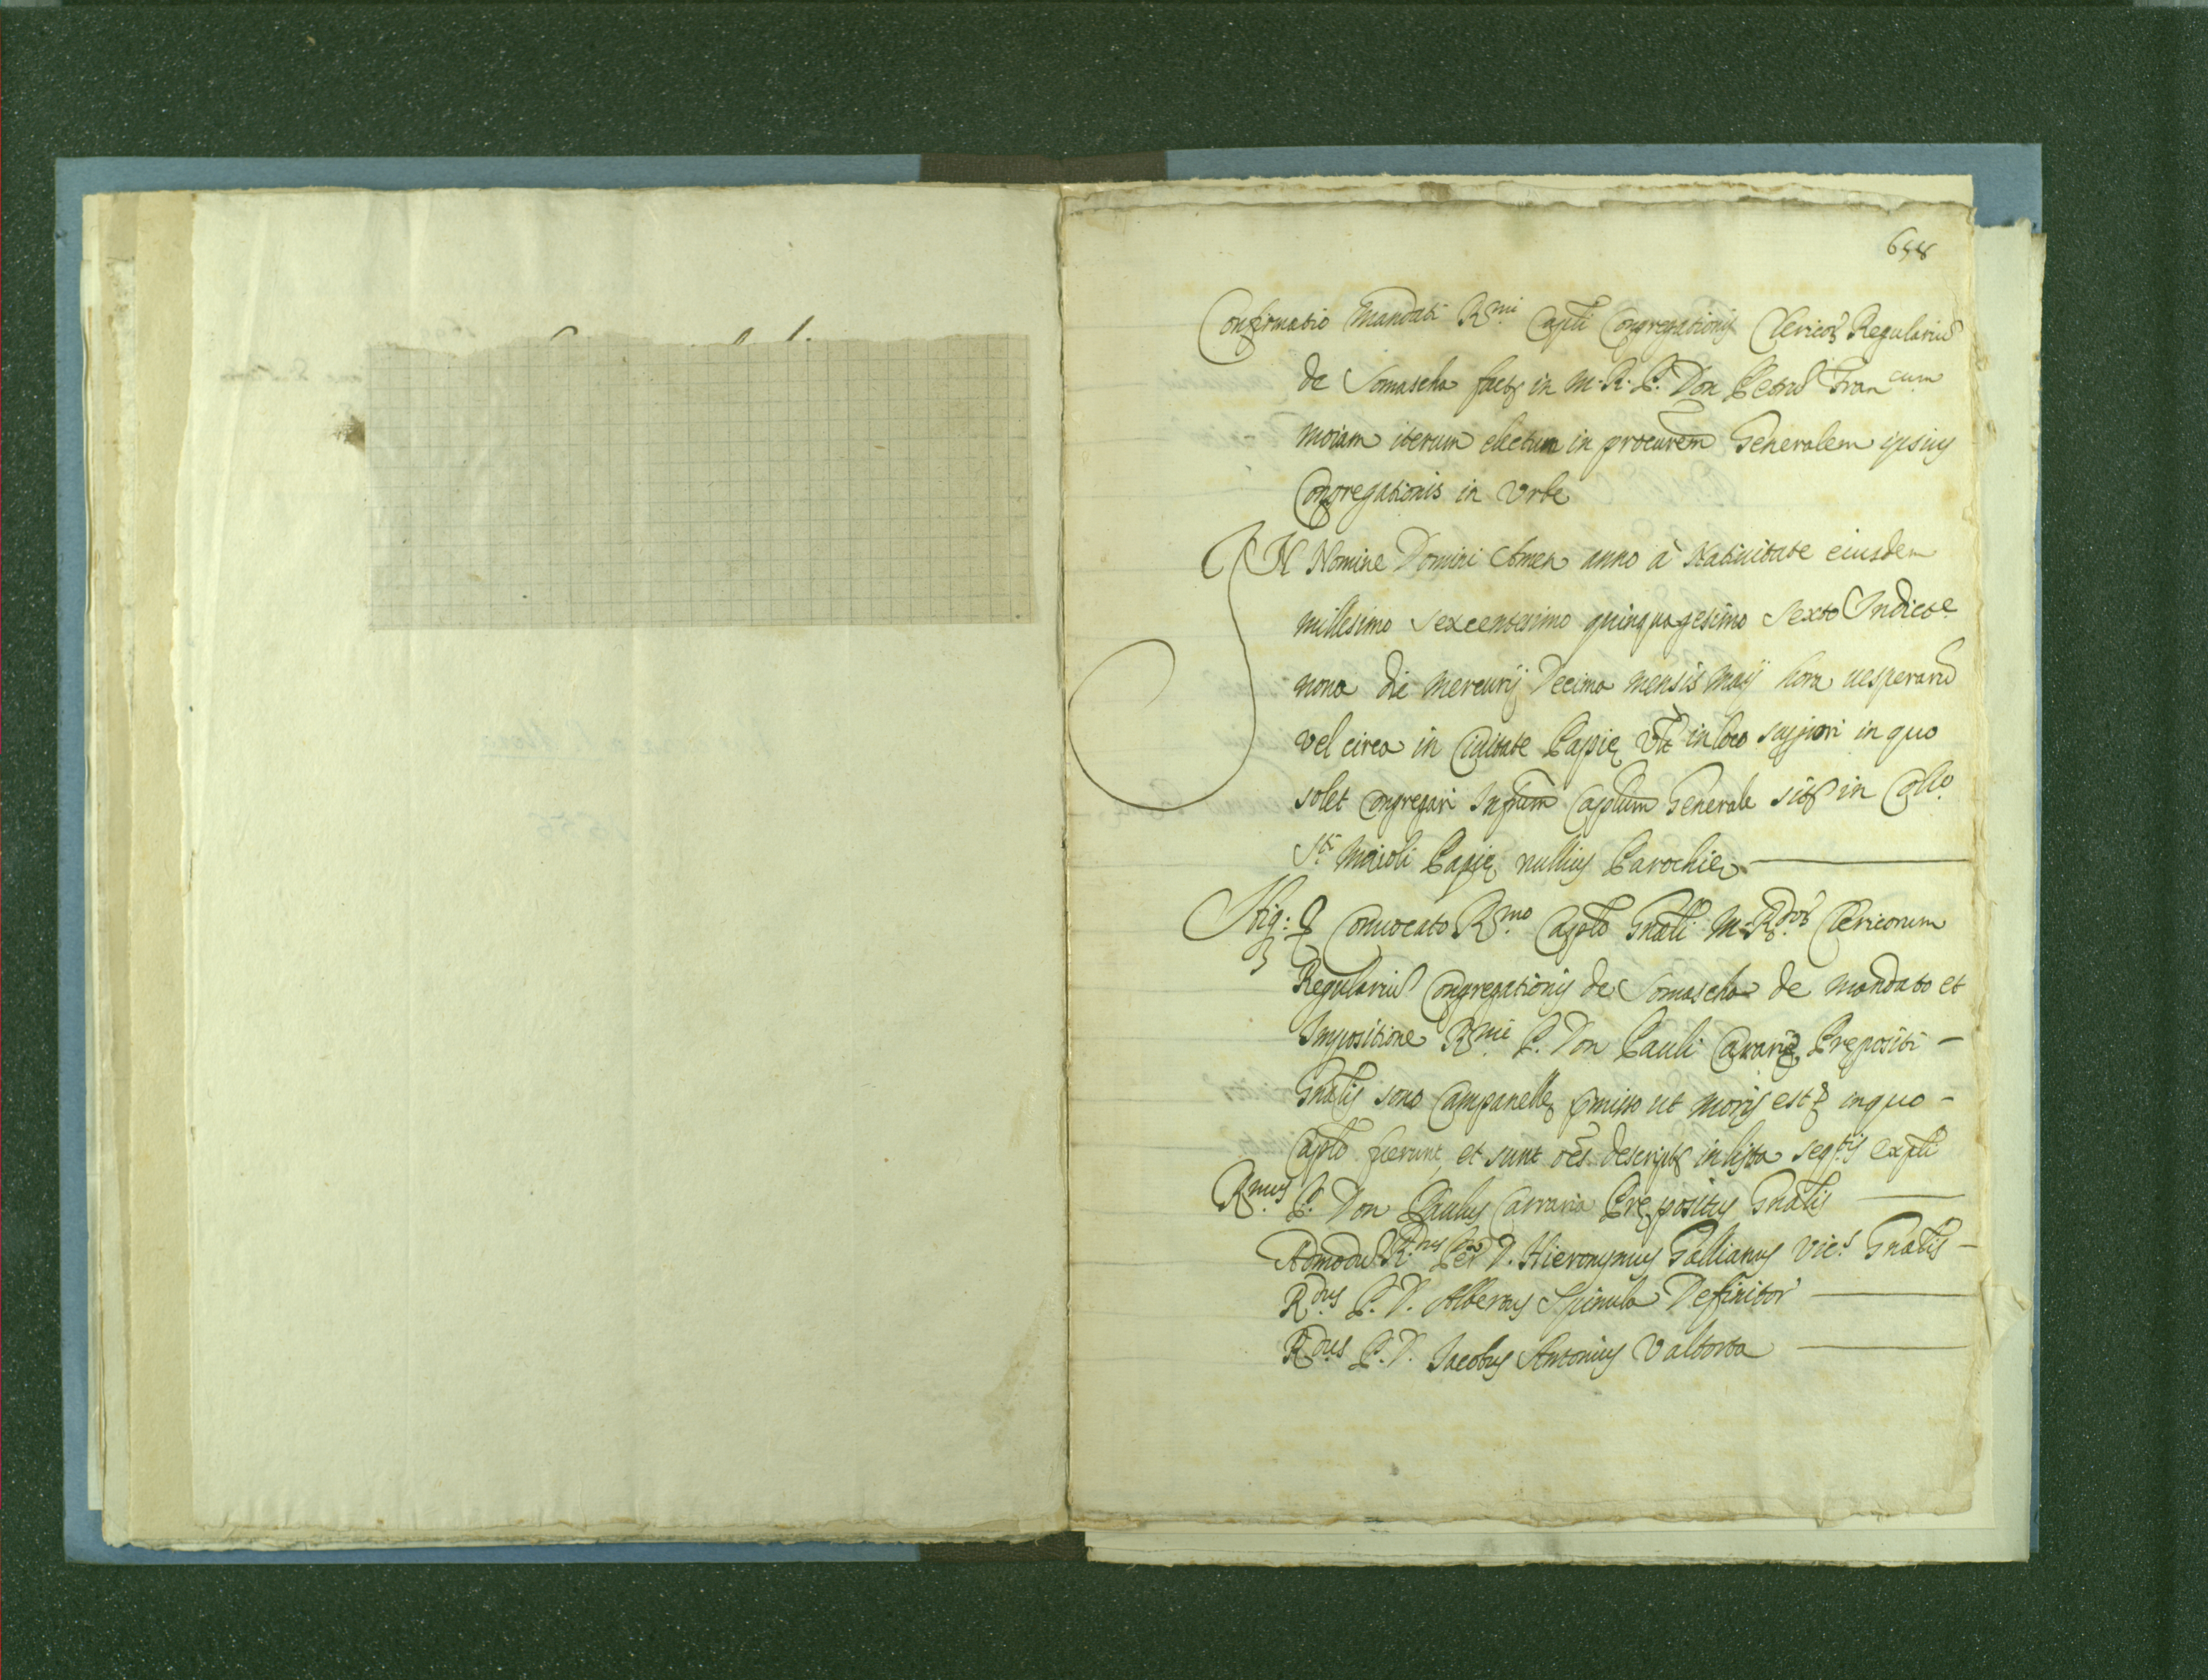 658
Confirmatio Mandati R.mi Capli Congregationis Clericor Regulariu
de Somascha fact in M. R. P. Don Petru Fran.cum
Moiam iterum electum in procurem Generalem ipsius
Congregationis in Urbe
IN Nomine Domini Amen anno à Natiuitate eiusdem
millesimo sexcentesimo quinquagesimo sexto Indict.e
nona die Mercurij Decima mensis Maij hora uesperaru
vel circa in Ciuitate Papie in loco in quo
solet congregari Caplum Generale in Coll.o
S.ti Maioli Papie nullius Parochie
Conuocato R.mo Caplo Gnali M. R.dor Clericorum
Regulariu Congregationis de Somascha de mandato et
Impositione R.mi P. Don Pauli Carrarie Prepositi -
Gnalis sono Campanelle pmisso ut moris est in quo -
Caplo fuerunt, et sunt oes descript in lista
R.mus P. Don Paulus Carraria Prepositus Gnalis
Admodu R.dus P. D. Hieronymus Gallianus Vic.s Gnalis -
R.dus P. D. Albertus Spinula Definitor
R.dus P. D. Iacobus Antonius Valtorta